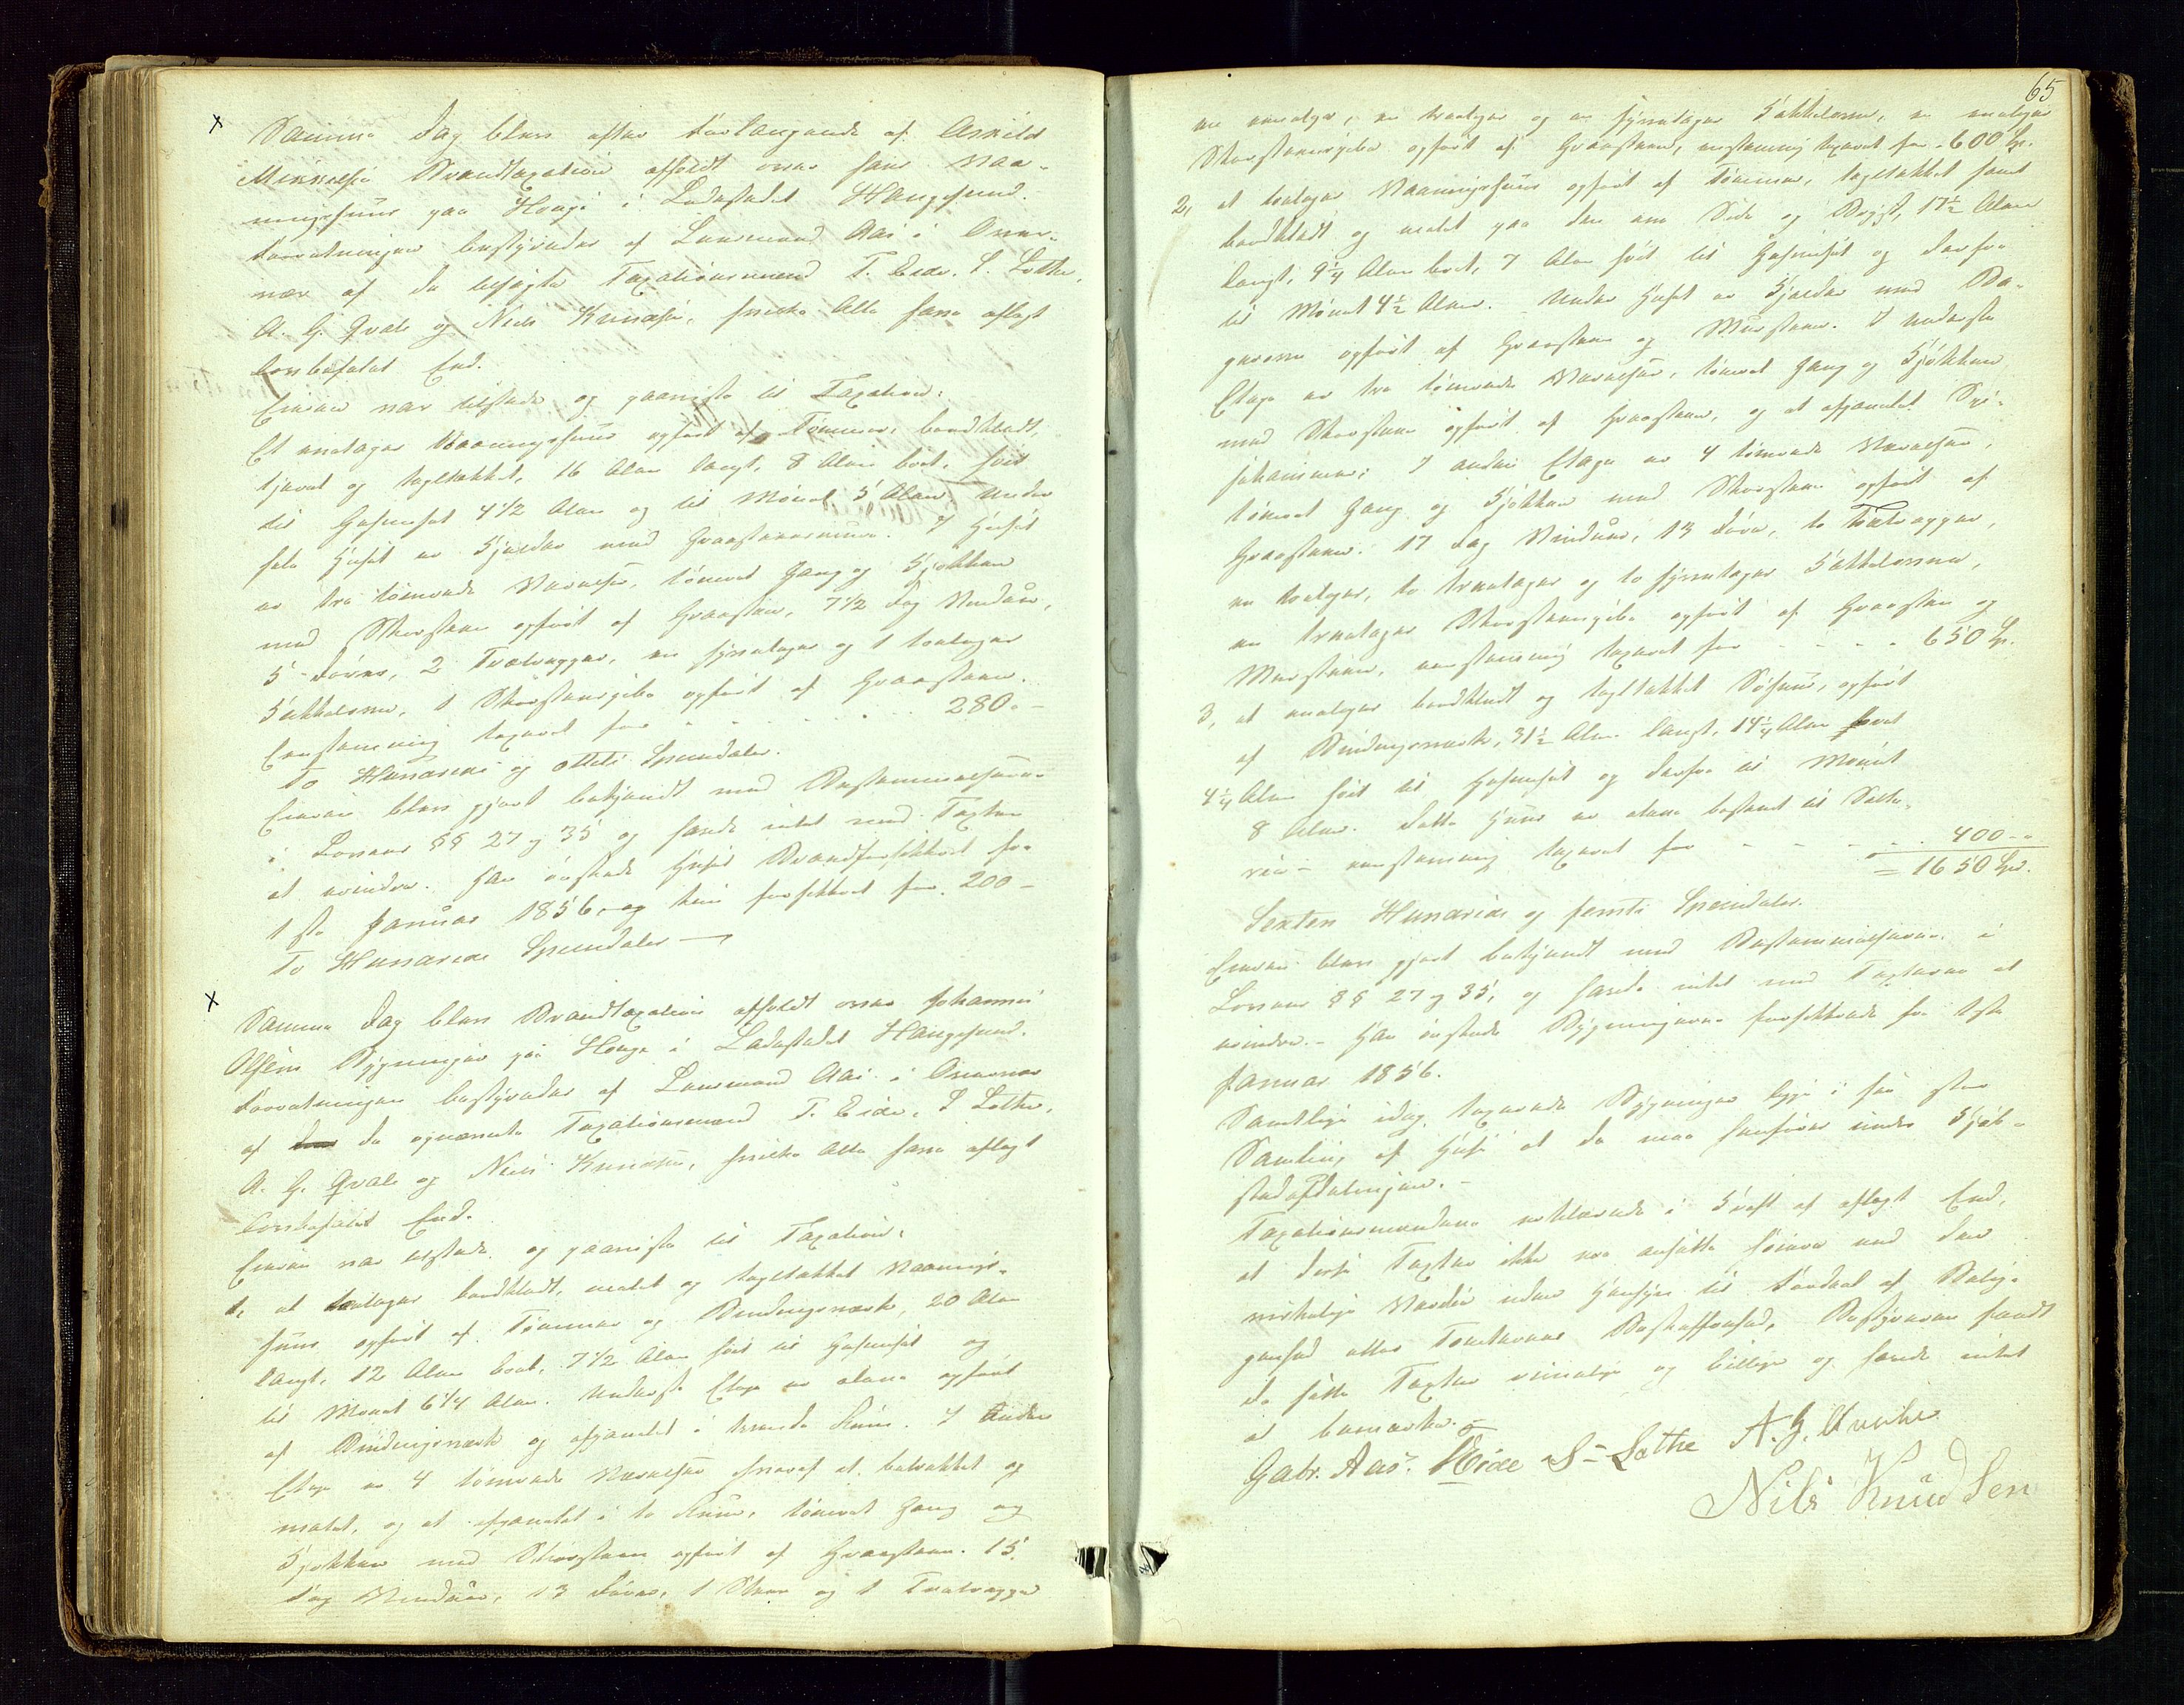 Samme Dag blev efter Forlangende af Arnild
Mikkelsen Brandtaxation afholdt over hans Vaa-
ningshuus paa Hauge i Ladestedet Haugesund.
Forretningen bestyredes af Lensmand Aas i Over-
vær af de beskikkede Taxationsmænd T. Eide, S. Lothe,
A. G. Qvale og Niels Knudsen, hvilke Alle have aflagt
lovbefalet Eed.
Eieren var tilstede og paaviste til Taxation:
Et enetages Vaaningshuus opført af Tømmer, bordklædt,
tjæret og tagltækket, 16 Alen langt, 8 Alen bredt, høit
til Gesimset 4 1/2 Alen og til Mønet 5 Alen. Under
hele Huset er Kjælder med Graasteensmuur. I Huset
er tre tømrede Værelser, tømret Gang og Kjøkken
med Skorsteen opført af Graasteen, 7 1/2 Fag Vinduer,
5 Dørre, 2 Trætrapper, en fiiretages og 1 toetages
Kakkelovne, 1 Skorsteenspibe opført af Graasteen.
Eenstemmig taxeret for . . . . . . . 280 –
To Hundrede og otteti Speciedaler.
Eieren blev gjort bekjendt med Bestemmelserne
i Lovens §§ 27 og 35 og havde intet mod Taxten
at erindre. Han ønskede Huset Brandforsikkret fra
1ste Januar 1856, og kun forsikkret for 200 –
To Hundrede Speciedaler –
Samme Dag blev Brandtaxation afholdt over Johannes
Olsens Bygninger paa Hauge i Ladestedet Haugesund.
Forretningen bestyredes af Lensmand Aas i Overvær
af de opnævnte Taxationsmænd T. Eide, S. Lothe,
A. G. Qvale og Niels Knudsen, hvilke Alle have aflagt
lovbefalet Eed.
Eieren var tilstede og paaviste til Taxation:
1, et toetages bordklædt, malet og tagltækket Vaanings-
huus opført af Tømmer og Bindingsværk, 20 Alen
langt, 12 Alen bredt, 7 1/2 Alen høit til Gesimset og
til Mønet 6 1/4 Alen. Underste Etage er alene opført
af Bindingsværk og afpanelet i trende Rum. I Anden
Etage er 4 tømrede Værelser hvoraf et betrukket og
malet, og et afpanelet i to Rum, tømret Gang og
Kjøkken med Skorsteen opført af Graasteen. 15
Fag Vinduer, 13 Dørre, 1 og 1 Trætrappe
65
en enetages, en treetages og en fiiretages Kakkelovne, en enetages
Skorsteenspibe opført af Graasteen, eenstemmig taxeret for 600 Sp.
2, et toetages Vaaningshuus opført af Tømmer, tagltækket samt
bordklædt og malet paa den ene Side og Bryst, 17 1/2 Alen
langt, 9 1/4 Alen bredt, 7 Alen høit til Gesimset og derfra
til Mønet 4 1/2 Alen. Under Huset er Kjælder med
opført af Graasteen og Muursteen. I underste
Etage er tre tømrede Værelser, tømret Gang og Kjøkken
med Skorsteen opført af Graasteen, og et afpanelet Spi-
sekammer; I anden Etage er 4 tømrede Værelser,
tømret Gang og Kjøkken med Skorsteen opført af
Graasteen. 17 Fag Vinduer, 13 Døre, to Trætrapper,
en toetages, to treetages og to fiiretages Kakkelovne,
en treetages Skorsteenspibe opført af Graasteen og
Muursteen, eenstemmig taxeret for . . . . 650 Sp.
3, et enetages bordklædt og tagltækket Søhuus, opført
af Bindingsværk, 31 1/2 Alen langt, 14 1/4 Alen bredt
4 1/4 Alen høit til Gesimset og derfra til Mønet
8 Alen. Dette Huus er alene bestemt til Salte-
rie – eenstemmig taxeret for . . . . . 400 –
= 1650 Spd.
Sexten Hundrede og femti Speciedaler.
Eieren blev gjort bekjendt med Bestemmelserne i
Lovens §§ 27 og 35, og havde intet mod Taxterne at
erindre. – Han ønskede Bygningerne forsikkrede fra 1ste
Januar 1856.
Samtlige idag taxerede Bygninger ligge i saa stor
Samling af Huse at de maa henføres under Kjøb-
stadafdelingen. –
Taxationsmændene erklærede i Kraft af aflagt Eed,
at disse Taxter ikke ere ansatte høiere end den
virkelige Værdie uden Hensyn til Fordeel af Belig-
genhed eller Tomternes Beskaffenhed, Bestyreren fandt
de satte Taxter rimelige og billige og havde intet
at bemærke.
Gabr. Aas. TEide S. Lothe A. G. Qvale
Nils Knudsen